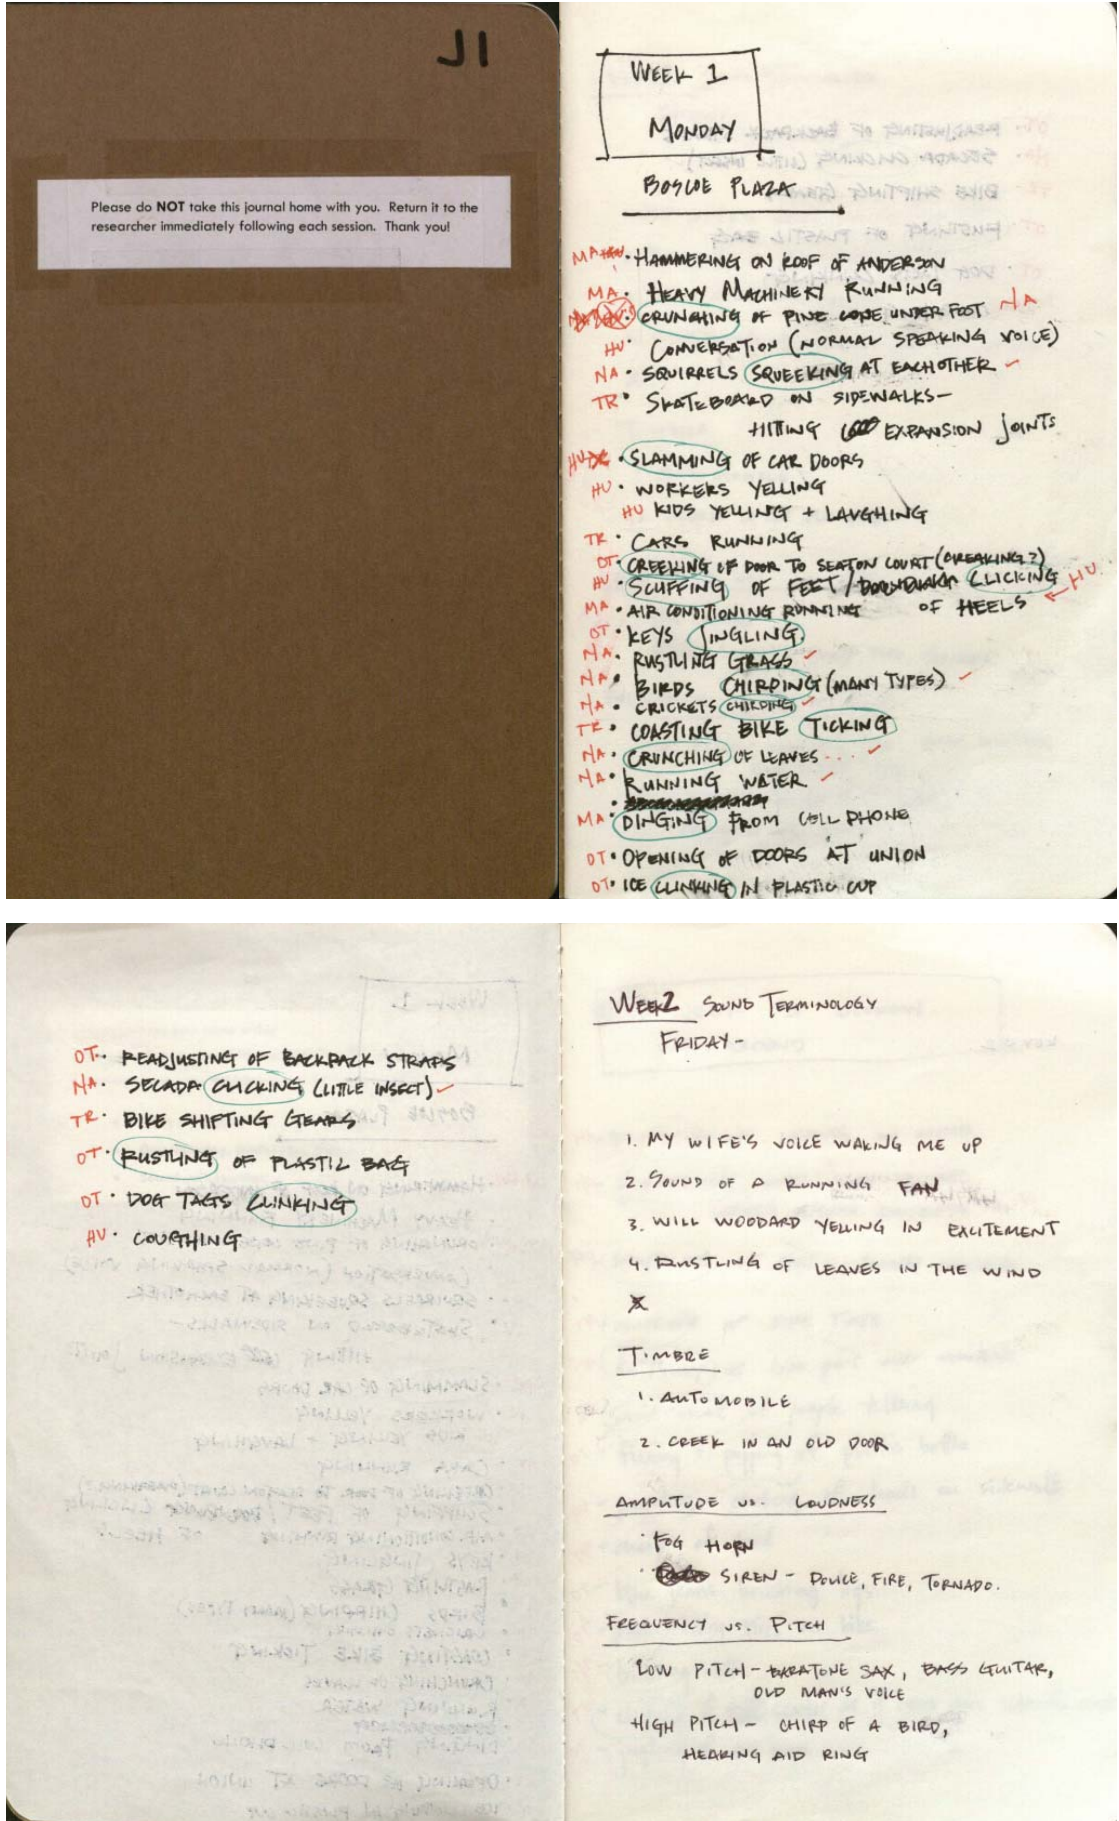 J1
Please do NOT take this journal home with you. Return it to the
researcher immediately following each session. Thank you!
WEEK 1
MONDAY
BOSCOE PLAZA
MA · HAMMERING ON ROOF OF ANDERSON
MA · HEAVY MACHINERY RUNNING
· CRUNCHING OF PINE CONE UNDER FOOT NA
HU · CONVERSATION (NORMAL SPEAKING VOICE)
NA · SQUIRRELS SQUEEKING AT EACHOTHER ✓
TR · SKATEBOARD ON SIDEWALKS—
HITTING EXPANSION JOINTS
HU · SLAMMING OF CAR DOORS
HU · WORKERS YELLING
HU KIDS YELLING + LAUGHING
TR · CARS RUNNING
OT · CREEKING OF DOOR TO SEATON COURT (CREAKING?)
HU · SCUFFING OF FEET / CLICKING ← HU
MA · AIR CONDITIONING RUNNING OF HEELS
OT · KEYS JINGLING
NA · RUSTLING GRASS ✓
NA · BIRDS CHIRPING (MANY TYPES) ✓
NA · CRICKETS CHIRPING ✓
TR · COASTING BIKE TICKING
NA · CRUNCHING OF LEAVES ... ✓
NA · RUNNING WATER ✓
MA · DINGING FROM CELL PHONE
OT · OPENING OF DOORS AT UNION
OT · ICE CLINKING IN PLASTIC CUP
OT · READJUSTING OF BACKPACK STRAPS
NA · SECADA CLICKING (LITTLE INSECT) ✓
TR · BIKE SHIFTING GEARS
OT · RUSTLING OF PLASTIC BAG
OT · DOG TAGS CLINKING
HU · COUGHING
WEEK 2 SOUND TERMINOLOGY
FRIDAY -
1. MY WIFE'S VOICE WAKING ME UP
2. SOUND OF A RUNNING FAN
3. WILL WOODARD YELLING IN EXCITEMENT
4. RUSTLING OF LEAVES IN THE WIND
TIMBRE
1. AUTOMOBILE
2. CREEK IN AN OLD DOOR
AMPLITUDE vs. LOUDNESS
· FOG HORN
· SIREN - POLICE, FIRE, TORNADO.
FREQUENCY vs. PITCH
LOW PITCH - BARATONE SAX, BASS GUITAR,
OLD MAN'S VOICE
HIGH PITCH - CHIRP OF A BIRD,
HEARING AID RING